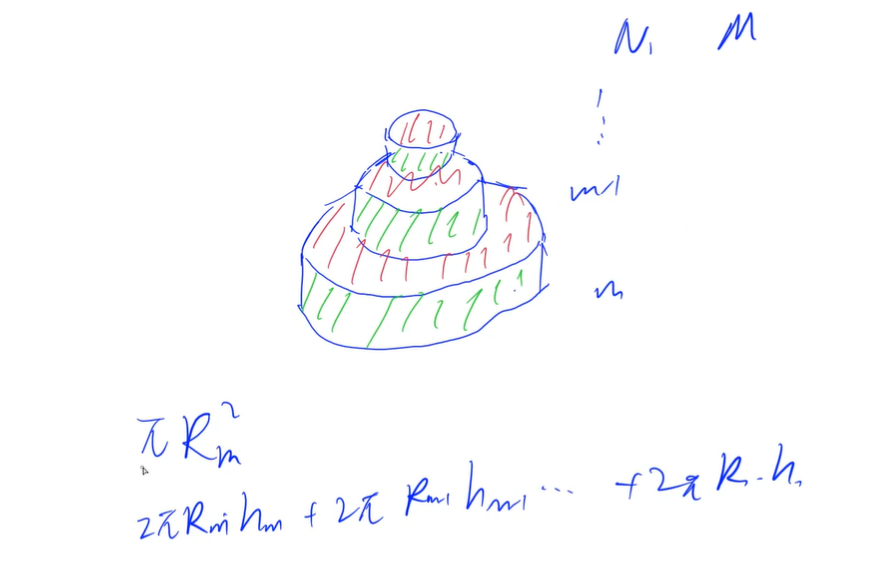 N, M
⋮
m-1
m
πR_m^2
2πR_m h_m + 2πR_{m-1} h_{m-1} ... + 2πR_1 · h_1